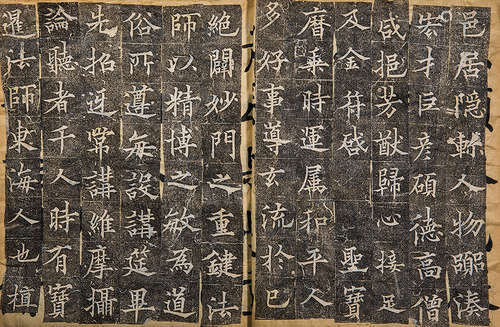 邑居隱軫人物湊
宏才巨彥碩德高僧
咸挹芳猷歸心接足
及金符啓 聖寶
曆乘時運属和平人
多好事導玄流於已
絕闢妙門之重鍵法
師以精博之敏為道
俗所遵每設講筵畢
先招迓常講維摩攝
論聽者千人時有寶
暹法師東海人也